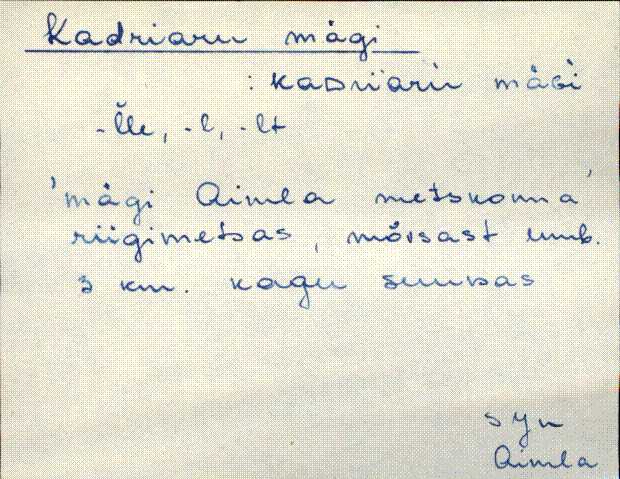 Kadriaru mägi
: kaDriiarù mäGì
-l̆le, -l, -lt
'mägi Aimla metskonna'
riigimetsas, mõisast umb.
3 km. kagu suunas
Syn
Aimla